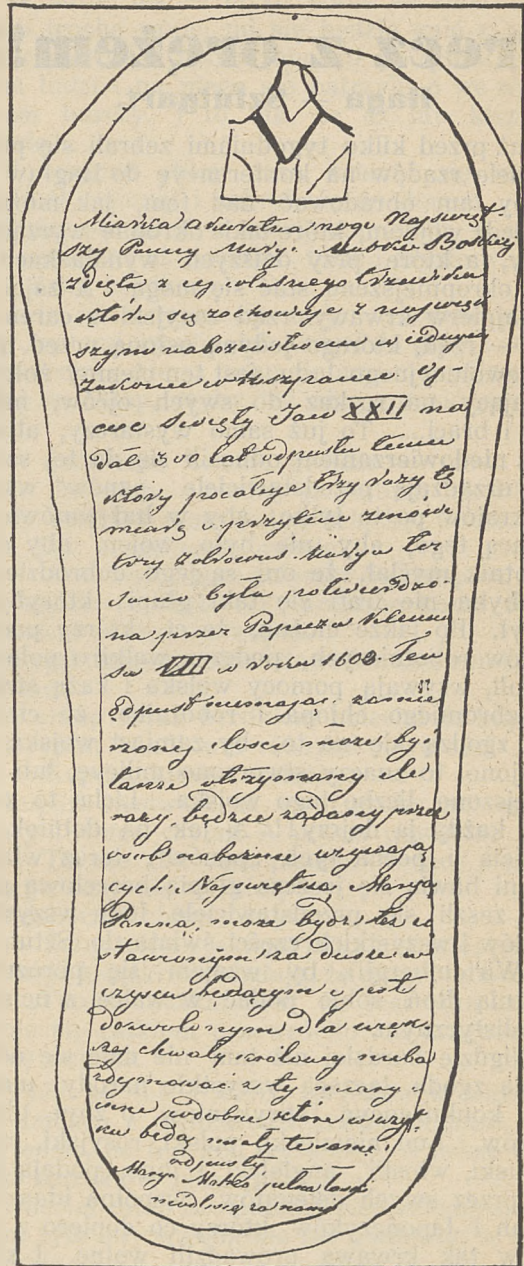 Miarka akuratna nogi Najswięt-
szy Panny Mary. Matki Boskiej
zdięta z iey własnego trzewika
która się zachowuje z najwięk
szym nabożeństwem w iednym
Zakonie w Hiszpanii Oj-
ciec Święty Jan XXII na
dał 300 lat odpustu temu
który pocałuje trzy razy tę
miarę i przytem zmówi
trzy Zdrowaś. Marya też
samo była potwierdzo-
na przez Papieża Klemen
sa VIII w Roku 1603. Ten
odpust niemając zamie
rzonej ilosci może być
także otrzymany ile
razy będzie żądany przez
osob nabożnie wzywają
cych Najswiętszą Maryą
Panną, może bydź też u
stawionym za dusze w
czyscu będącym i jest
dozwolonym dla więk-
szej chwały królowy nieba
zdymować z tey miary i
inne podobne które wszyst-
kie będą miały te same
odpusty.
Maryo Matko pełna łaski
módl się za nami